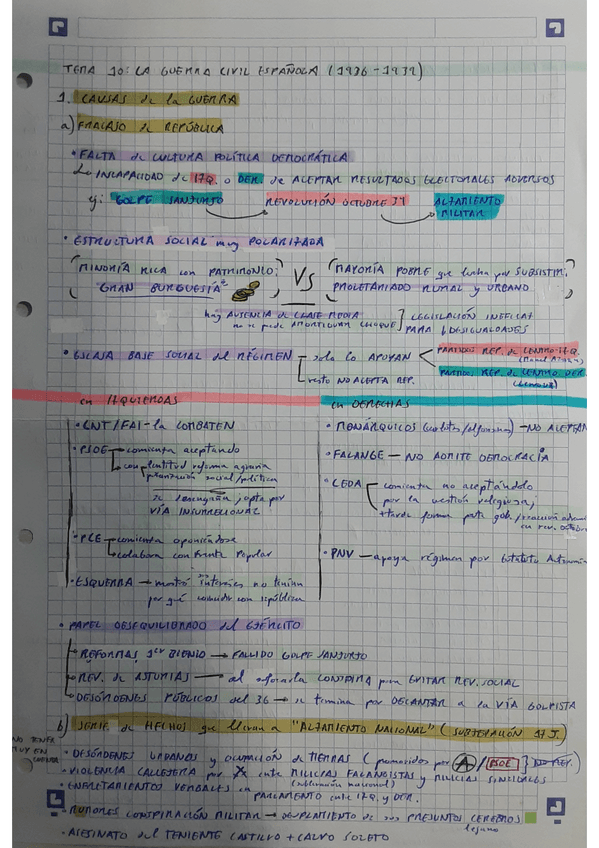 TEMA 10: LA GUERRA CIVIL ESPAÑOLA (1936-1939)
1. CAUSAS de la GUERRA
a) FRACASO de REPÚBLICA
• FALTA de CULTURA POLÍTICA DEMOCRÁTICA
INCAPACIDAD de IZQ. o DER. de ACEPTAR RESULTADOS ELECTORALES ADVERSOS
ej: GOLPE SANJURJO → REVOLUCIÓN OCTUBRE 34 → ALZAMIENTO MILITAR
• ESTRUCTURA SOCIAL muy POLARIZADA
MINORÍA RICA con PATRIMONIO: GRAN BURGUESÍA
VS
MAYORÍA POBRE que lucha por SUBSISTIR: PROLETARIADO RURAL y URBANO
hay AUSENCIA de CLASE MEDIA
no se puede AMORTIGUAR CHOQUE
LEGISLACIÓN INEFICAZ PARA ↓ DESIGUALDADES
• ESCASA BASE SOCIAL del RÉGIMEN
solo lo APOYAN
PARTIDOS REP. de CENTRO-IZQ.
(Manuel Azaña)
PARTIDOS REP. de CENTRO DER.
(Lerroux)
resto NO ACEPTA REP.
en IZQUIERDAS
• CNT/FAI - la COMBATEN
• PSOE → comienza aceptando
→ con lentitud reforma agraria
social/política
se desengaña y opta por
VÍA INSURRECCIONAL
• PCE → comienza oponiéndose
→ colabora con Frente Popular
• ESQUERRA → mostró intereses no tenían
por qué coincidir con república
en DERECHAS
• MONÁRQUICOS (carlistas/alfonsinos) - NO ACEPTAN
• FALANGE - NO ADMITE DEMOCRACIA
• CEDA → comienza no aceptándolo
por la cuestión religiosa;
+ tarde forma parte gob.
en rev. octubre
• PNV - apoya régimen por Estatuto Autonomía
• PAPEL DESEQUILIBRADO del EJÉRCITO
REFORMAS 1er BIENIO → FALLIDO GOLPE SANJURJO
REV. de ASTURIAS → al sofocarla CONSPIRA para EVITAR REV. SOCIAL
DESÓRDENES PÚBLICOS del 36 → se termina por DECANTAR a la VÍA GOLPISTA
b) SERIE de HECHOS que llevan a "ALZAMIENTO NACIONAL" (SUBLEVACIÓN 17 J.)
NO TENER MUY EN CUENTA
• DESÓRDENES URBANOS y OCUPACIÓN de TIERRAS (promovidos por A / PSOE) NO REP.
• VIOLENCIA CALLEJERA por entre MILICIAS FALANGISTAS y MILICIAS SINDICALES
• ENFRENTAMIENTOS VERBALES en
PARLAMENTO entre IZQ. y DER.
• RUMORES CONSPIRACIÓN MILITAR → DESPLAZAMIENTO de sus PRESUNTOS CEREBROS
lejano
• ASESINATO del TENIENTE CASTILLO + CALVO SOTELO